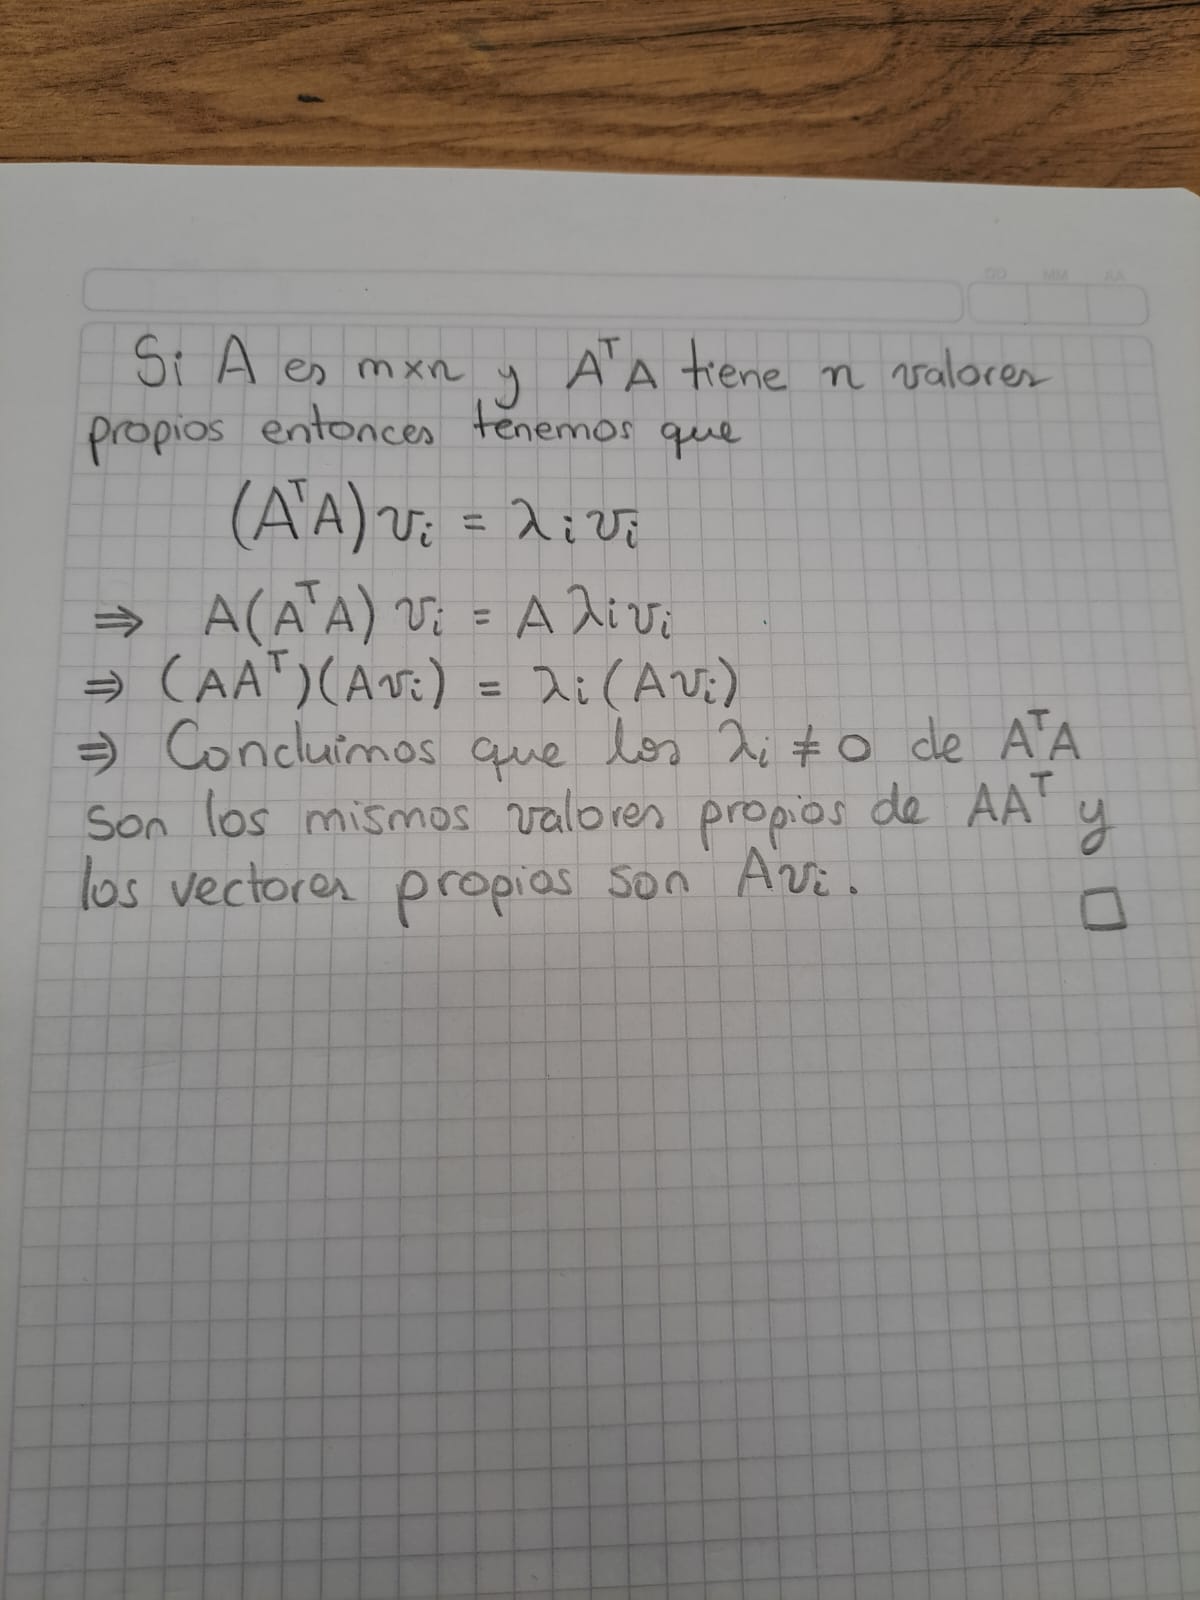 DD MM AA
Si A es m×n y AᵀA tiene n valores
propios entonces tenemos que
(AᵀA)vᵢ = λᵢvᵢ
⇒ A(AᵀA)vᵢ = Aλᵢvᵢ
⇒ (AAᵀ)(Avᵢ) = λᵢ(Avᵢ)
⇒ Concluimos que los λᵢ ≠ 0 de AᵀA
son los mismos valores propios de AAᵀ y
los vectores propios son Avᵢ.
□